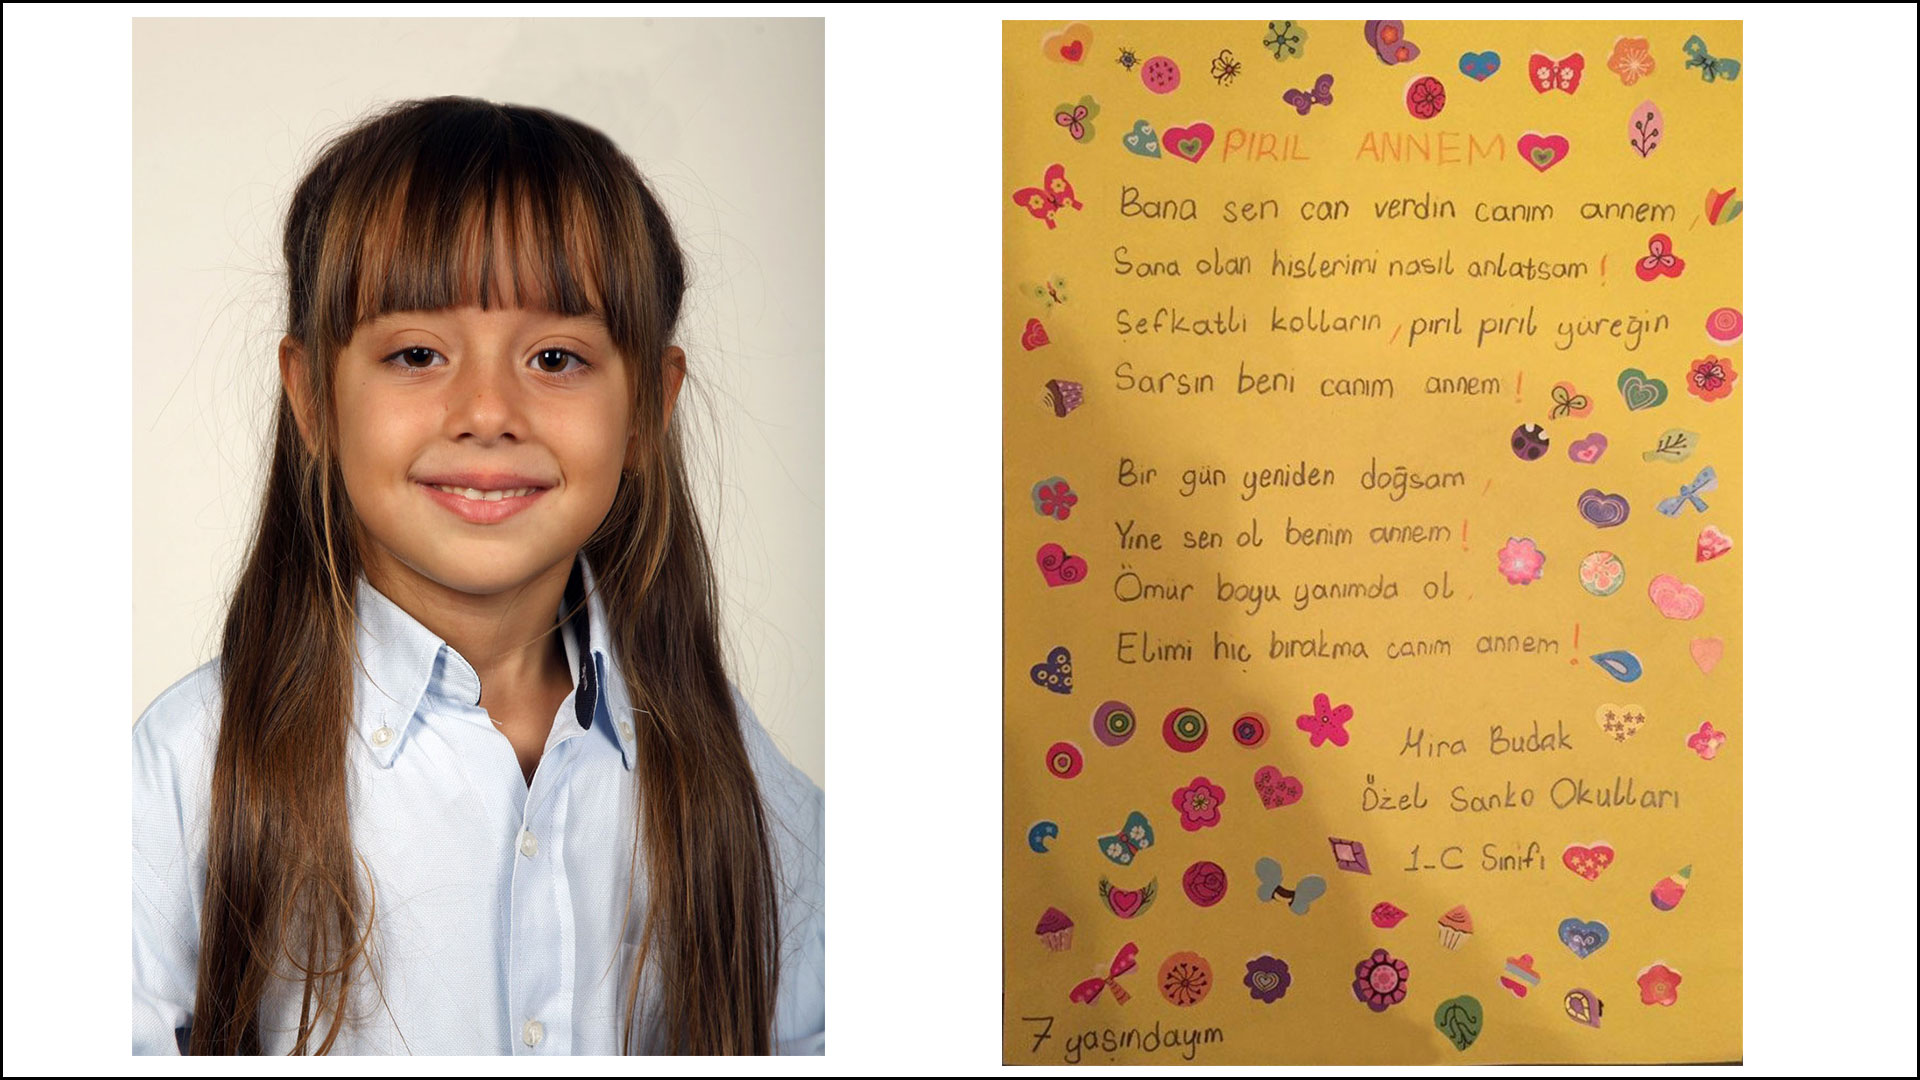 PIRIL ANNEM
Bana sen can verdin canım annem,
Sana olan hislerimi nasıl anlatsam!
Şefkatli kolların, pırıl pırıl yüreğin
Sarsın beni canım annem!
Bir gün yeniden doğsam,
Yine sen ol benim annem!
Ömür boyu yanımda ol,
Elimi hiç bırakma canım annem!
Mira Budak
Özel Sanko Okulları
1-C Sınıfı
7 yaşındayım